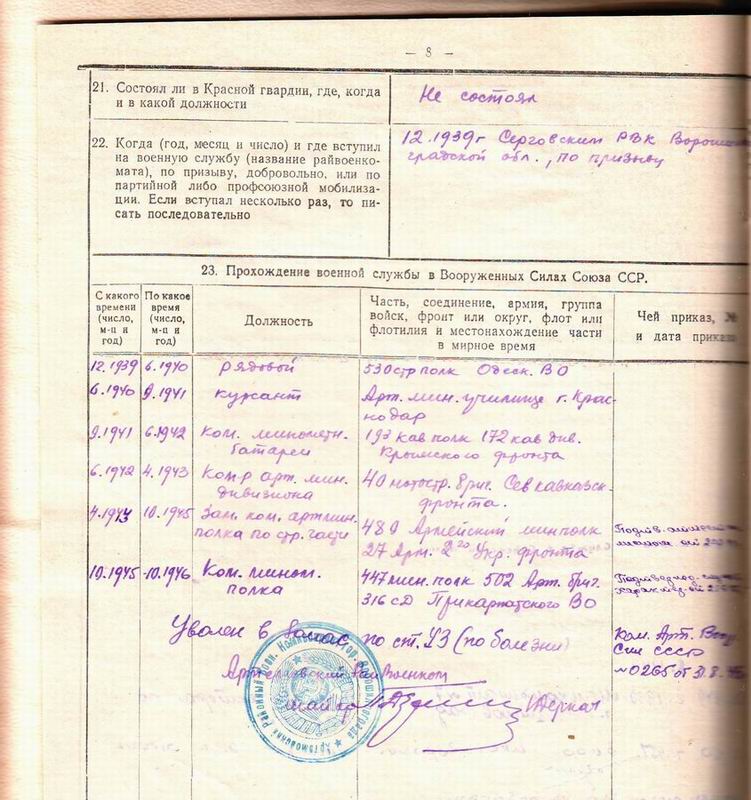 — 8 —
21. Состоял ли в Красной гвардии, где, когда
и в какой должности
Не состоял
22. Когда (год, месяц и число) и где вступил
на военную службу (название райвоенко-
мата), по призыву, добровольно, или по
партийной либо профсоюзной мобилиза-
ции. Если вступал несколько раз, то пи-
сать последовательно
12.1939г Серговским РВК Ворошилов
градской обл., по призыву
23. Прохождение военной службы в Вооруженных Силах Союза ССР.
С какого
времени
(число,
м-ц и
год)
По какое
время
(число,
м-ц и
год)
Должность
Часть, соединение, армия, группа
войск, фронт или округ, флот или
флотилия и местонахождение части
в мирное время
Чей приказ, №
и дата приказа
12.1939 6.1940 рядовой 530 стр полк Одеск. ВО
6.1940 9.1941 курсант Арт. мин. училище г. Крас-
нодар
9.1941 6.1942 Ком. минометн. 193 кав полк 172 кав див.
батареи Крымского фронта
6.1942 4.1943 Ком-р арт. мин. 40 мотостр. бриг. Сев кавказск.
дивизиона фронта.
4.1943 10.1945 Зам. ком. арт мин. 480 Армейский мин полк
полка по стр. части 27 Арм. 2го Укр. фронта
10.1945 10.1946 Ком. мином. 447 мин. полк 502 Арт. бриг.
полка 316 сд Прикарпатского ВО
Уволен в запас по ст. 43 (по болезни) Ком. Арт. Воор
Сил СССР
№0265 от 31.8.
Артемовский Рай Военком
майор